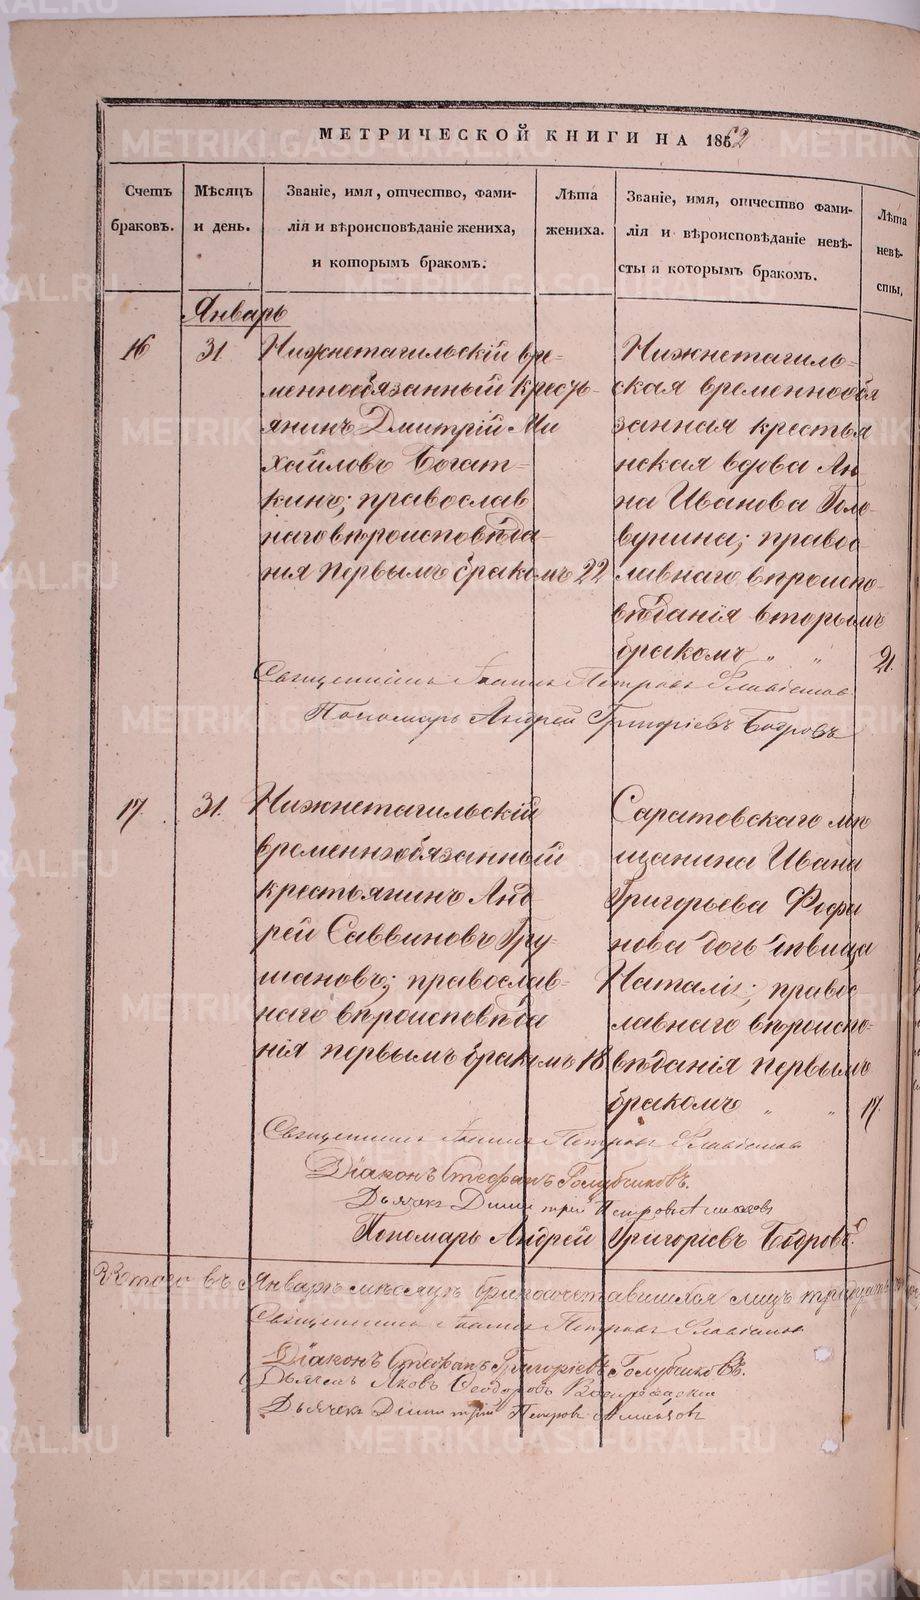 МЕТРИЧЕСКОЙ КНИГИ НА 1862
Счетъ браковъ.
Мѣсяцъ и день.
Званіе, имя, отчество, фами-
лія и вѣроисповѣданіе жениха,
и которымъ бракомъ.
Лѣта
жениха.
Званіе, имя, отчество фами-
лія и вѣроисповѣданіе невѣ-
сты и которымъ бракомъ.
Лѣта
невѣ-
сты.
Январь
16
31.
Нижнетагильскій вре-
меннообязанный кресть-
янинъ Дмитрій Ми
хайловъ Богат-
кинъ; православ
наго вѣроисповѣда-
нія первымъ бракомъ
22
Нижнетагиль-
ская временнообя
занная крестья
нская вдова Ан
на Иванова Голо-
вунина; правос-
лавнаго вѣроиспо-
вѣданія вторымъ
бракомъ " "
21.
Священникъ Іоаннъ Петровъ
Пономарь Андрей Григоріевъ Бобровъ
17.
31.
Нижнетагильскій
временнообязанный
крестьянинъ Анд
рей Саввиновъ Гру-
шановъ; православ-
наго вѣроисповѣда
нія первымъ бракомъ
18.
Саратовскаго мѣ
щанина Ивана
Григорьева Фофа
нова дочь дѣвица
Наталія; правос-
лавнаго вѣроиспо-
вѣданія первымъ
бракомъ " "
17.
Священникъ Іоаннъ Петровъ
Діаконъ Стефанъ Голубчиковъ.
Дьячекъ Димитрій Петровъ
Пономарь Андрей Григоріевъ Бобровъ.
Итого въ Январѣ мѣсяцѣ бракосочетавшихся лицъ тридцать
Священникъ Іоаннъ Петровъ
Діаконъ Стефанъ Григоріевъ Голубчиковъ.
Дьячекъ Яковъ Феодоровъ
Дьячекъ Димитрій Петровъ
METRIKI.GASO-URAL.RU